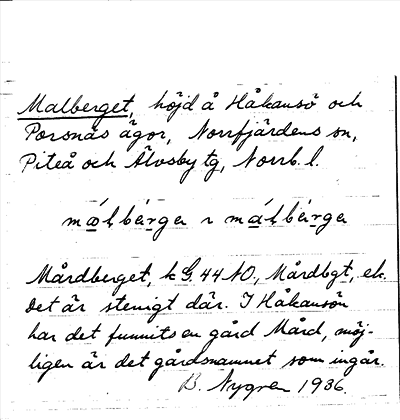 Malberget, höjd å Håkansö och
Porsnäs ägor, Norrfjärdens sn,
Piteå och Älvsby tg, Norrb. l.
Mårdberget, k G. 44 NO., Mårdbgt, ek.
Det är stenigt där. I Håkansön
har det funnits en gård Mård, möj-
ligen är det gårdsnamnet som ingår.
B. Nygren 1936.